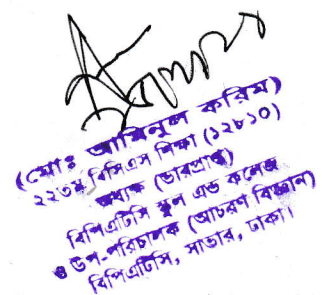 (মোঃ আমিনুল করিম)
২২তম বিসিএস শিক্ষা (১২৮১০)
অধ্যক্ষ (ভারপ্রাপ্ত)
বিপিএটিসি স্কুল এন্ড কলেজ
ও উপ-পরিচালক (আচরণ বিজ্ঞান)
বিপিএটিসি, সাভার, ঢাকা।